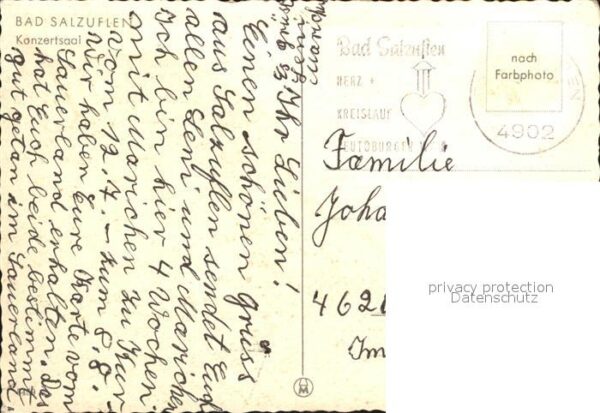 BAD SALZUFLEN
Konzertsaal
Ihr Lieben!
Einen schönen Gruss
aus Salzuflen sendet Euch
allen Leni und Mariechen
Ich bin hier 4 Wochen
mit Mariechen zu Kur
vom 12.7. – zum 8.8.
Wir haben Eure Karte vom
Sauerland erhalten. Das
hat Euch beide bestimmt
gut getan im Sauerland
Bad Salzuflen
HERZ +
KREISLAUF
TEUTOBURGER W
nach
Farbphoto
4902
Familie
Joha
462
Im
privacy protection
Datenschutz